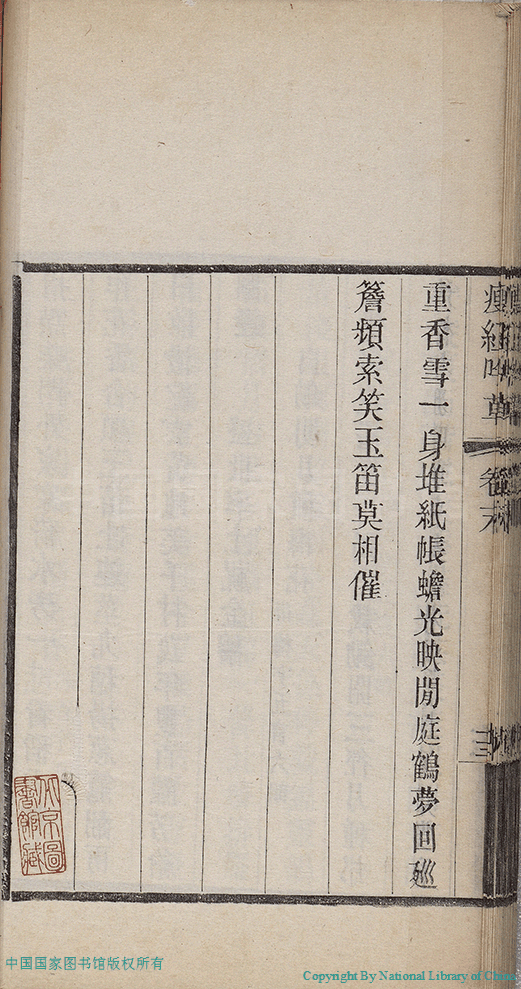 瘦紅吟草 卷末
重香雪一身堆紙帳蟾光映閒庭鶴夢回廵
簷頻索笑玉笛莫相催
北京圖書館藏
中国国家图书馆版权所有
Copyright By National Library of China